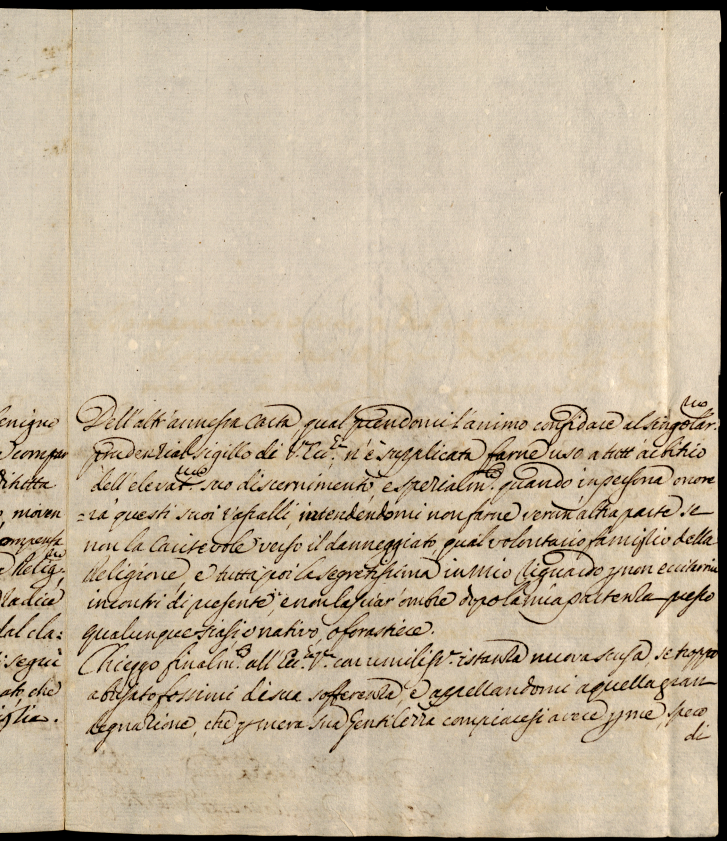 enigno
compar
dihitta
, moven
ompensa
Relig.ne
ladice
dal cla:
i segui
ato, che
iglia.
Dell'altr'annessa carta qual prendomi l'animo confidare al singolar.mo
prudenzial sigillo di V. Ecc.za n'è supplicata farne uso a tutt'arbitrio
dell'elevat.mo suo discernimento, e spezialm.te quando in persona onore
=rà questi suoi vassalli, intendendomi non farne verun'altra parte se
non la caritevole verso il danneggiato qual volontario famiglio della
Religione, e tutta poi la segretissima in mio riguardo p non eccitarmi
incontri di presente, e non lasciar'ombre dopo la mia partenza presso
qualunque siasi o nativo, o forastiere.
Chieggo finalm.te all'Ecc.a V.a con umiliss.a istanza nuova scusa, se troppo
abusato fossimi di sua sofferenza, e appellandomi a quella gran
degnazione, che p mera sua gentilezza compiacesi avere p me, spero
di